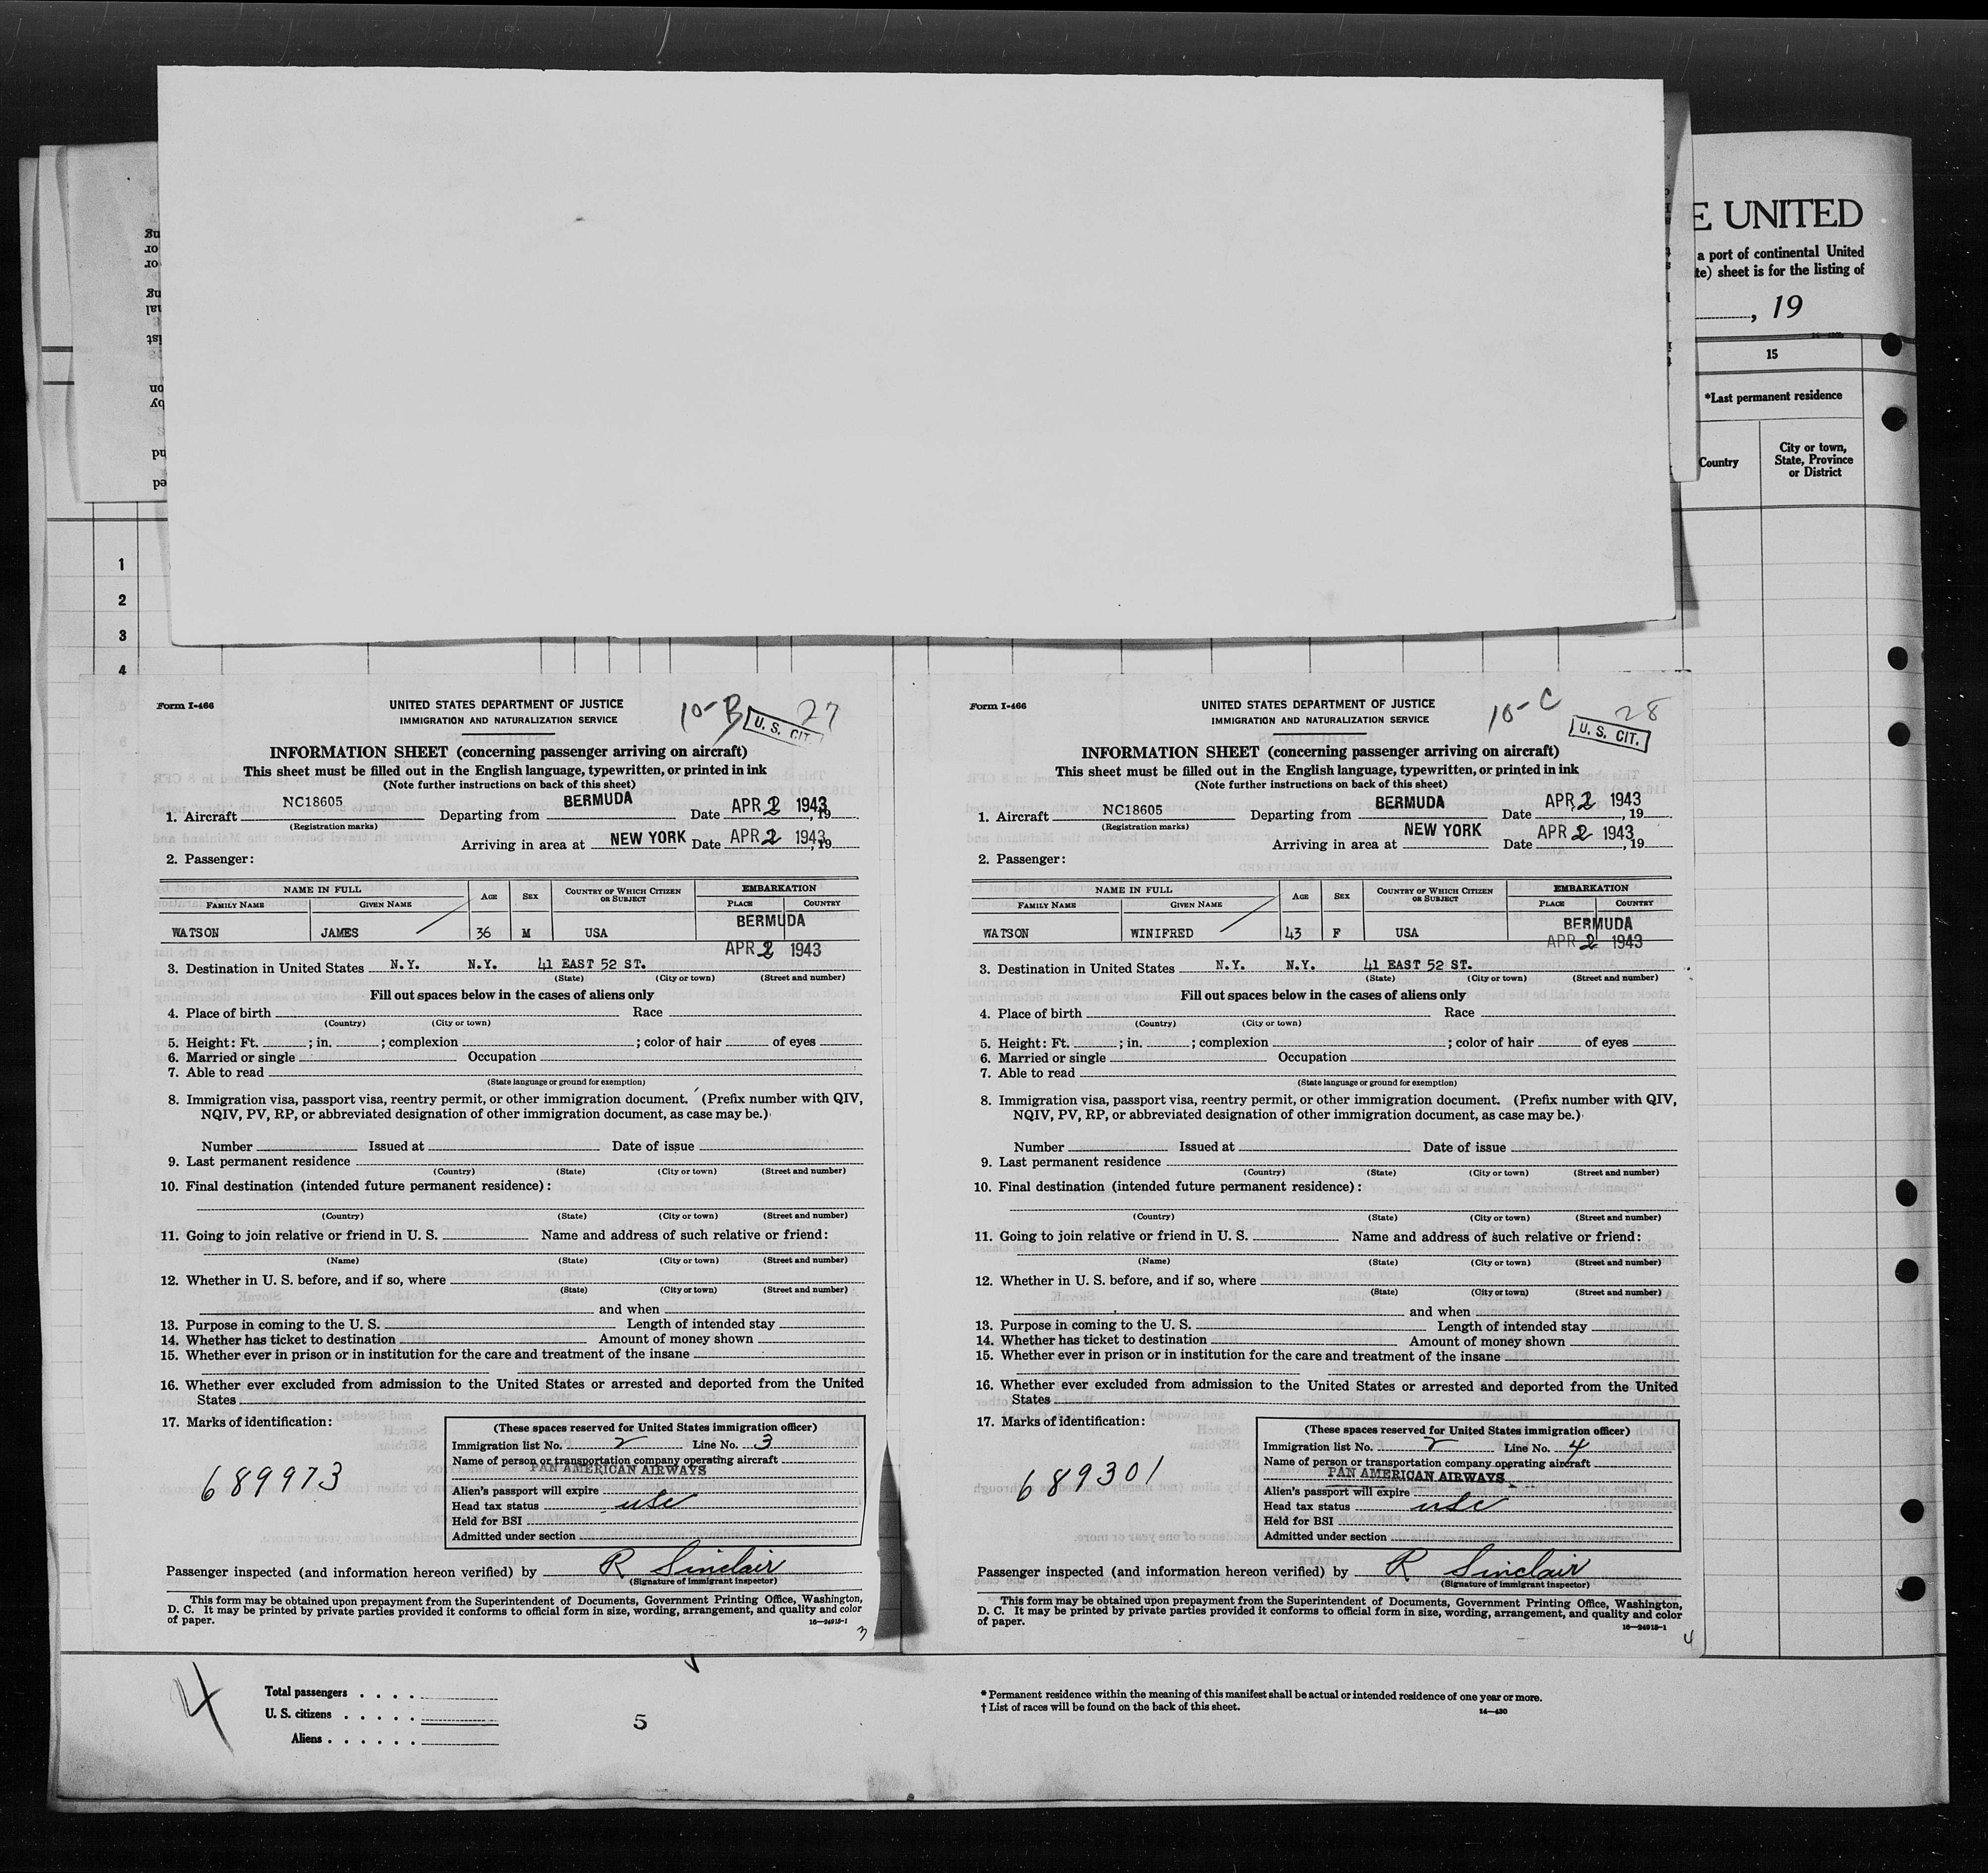 E UNITED
a port of continental United
te) sheet is for the listing of
, 19
15
*Last permanent residence
Country
City or town,
State, Province
or District
1
2
3
4
Form I-466
UNITED STATES DEPARTMENT OF JUSTICE
IMMIGRATION AND NATURALIZATION SERVICE
10-B
U. S. CIT.
27
INFORMATION SHEET (concerning passenger arriving on aircraft)
This sheet must be filled out in the English language, typewritten, or printed in ink
(Note further instructions on back of this sheet)
1. Aircraft NC18605 Departing from BERMUDA Date APR 2 1943, 19
(Registration marks)
Arriving in area at NEW YORK Date APR 2 1943, 19
2. Passenger:
NAME IN FULL
FAMILY NAME GIVEN NAME AGE SEX COUNTRY OF WHICH CITIZEN OR SUBJECT EMBARKATION
PLACE COUNTRY
WATSON JAMES 36 M USA BERMUDA
APR 2 1943
3. Destination in United States N.Y. N.Y. 41 EAST 52 ST.
(State) (City or town) (Street and number)
Fill out spaces below in the cases of aliens only
4. Place of birth Race
(Country) (City or town)
5. Height: Ft. ; in. ; complexion ; color of hair of eyes
6. Married or single Occupation
7. Able to read
(State language or ground for exemption)
8. Immigration visa, passport visa, reentry permit, or other immigration document. (Prefix number with QIV,
NQIV, PV, RP, or abbreviated designation of other immigration document, as case may be.)
Number Issued at Date of issue
9. Last permanent residence
(Country) (State) (City or town) (Street and number)
10. Final destination (intended future permanent residence):
(Country) (State) (City or town) (Street and number)
11. Going to join relative or friend in U. S. Name and address of such relative or friend:
(Name) (State) (City or town) (Street and number)
12. Whether in U. S. before, and if so, where
(State) (City or town) (Street and number)
and when
13. Purpose in coming to the U. S. Length of intended stay
14. Whether has ticket to destination Amount of money shown
15. Whether ever in prison or in institution for the care and treatment of the insane
16. Whether ever excluded from admission to the United States or arrested and deported from the United
States
17. Marks of identification:
689973
(These spaces reserved for United States immigration officer)
Immigration list No. 2 Line No. 3
Name of person or transportation company operating aircraft
PAN AMERICAN AIRWAYS
Alien's passport will expire
Head tax status usc
Held for BSI
Admitted under section
Passenger inspected (and information hereon verified) by R Sinclair
(Signature of immigrant inspector)
This form may be obtained upon prepayment from the Superintendent of Documents, Government Printing Office, Washington,
D. C. It may be printed by private parties provided it conforms to official form in size, wording, arrangement, and quality and color
of paper.
16—24915-1
3
Form I-466
UNITED STATES DEPARTMENT OF JUSTICE
IMMIGRATION AND NATURALIZATION SERVICE
10-C
28
U. S. CIT.
INFORMATION SHEET (concerning passenger arriving on aircraft)
This sheet must be filled out in the English language, typewritten, or printed in ink
(Note further instructions on back of this sheet)
1. Aircraft NC18605 Departing from BERMUDA Date APR 2 1943, 19
(Registration marks)
Arriving in area at NEW YORK Date APR 2 1943, 19
2. Passenger:
NAME IN FULL
FAMILY NAME GIVEN NAME AGE SEX COUNTRY OF WHICH CITIZEN OR SUBJECT EMBARKATION
PLACE COUNTRY
WATSON WINIFRED 43 F USA BERMUDA
APR 2 1943
3. Destination in United States N.Y. N.Y. 41 EAST 52 ST.
(State) (City or town) (Street and number)
Fill out spaces below in the cases of aliens only
4. Place of birth Race
(Country) (City or town)
5. Height: Ft. ; in. ; complexion ; color of hair of eyes
6. Married or single Occupation
7. Able to read
(State language or ground for exemption)
8. Immigration visa, passport visa, reentry permit, or other immigration document. (Prefix number with QIV,
NQIV, PV, RP, or abbreviated designation of other immigration document, as case may be.)
Number Issued at Date of issue
9. Last permanent residence
(Country) (State) (City or town) (Street and number)
10. Final destination (intended future permanent residence):
(Country) (State) (City or town) (Street and number)
11. Going to join relative or friend in U. S. Name and address of such relative or friend:
(Name) (State) (City or town) (Street and number)
12. Whether in U. S. before, and if so, where
(State) (City or town) (Street and number)
and when
13. Purpose in coming to the U. S. Length of intended stay
14. Whether has ticket to destination Amount of money shown
15. Whether ever in prison or in institution for the care and treatment of the insane
16. Whether ever excluded from admission to the United States or arrested and deported from the United
States
17. Marks of identification:
689301
(These spaces reserved for United States immigration officer)
Immigration list No. 2 Line No. 4
Name of person or transportation company operating aircraft
PAN AMERICAN AIRWAYS
Alien's passport will expire
Head tax status usc
Held for BSI
Admitted under section
Passenger inspected (and information hereon verified) by R Sinclair
(Signature of immigrant inspector)
This form may be obtained upon prepayment from the Superintendent of Documents, Government Printing Office, Washington,
D. C. It may be printed by private parties provided it conforms to official form in size, wording, arrangement, and quality and color
of paper.
16—24915-1
4
4
Total passengers
U. S. citizens
Aliens
5
* Permanent residence within the meaning of this manifest shall be actual or intended residence of one year or more.
† List of races will be found on the back of this sheet.
14—430